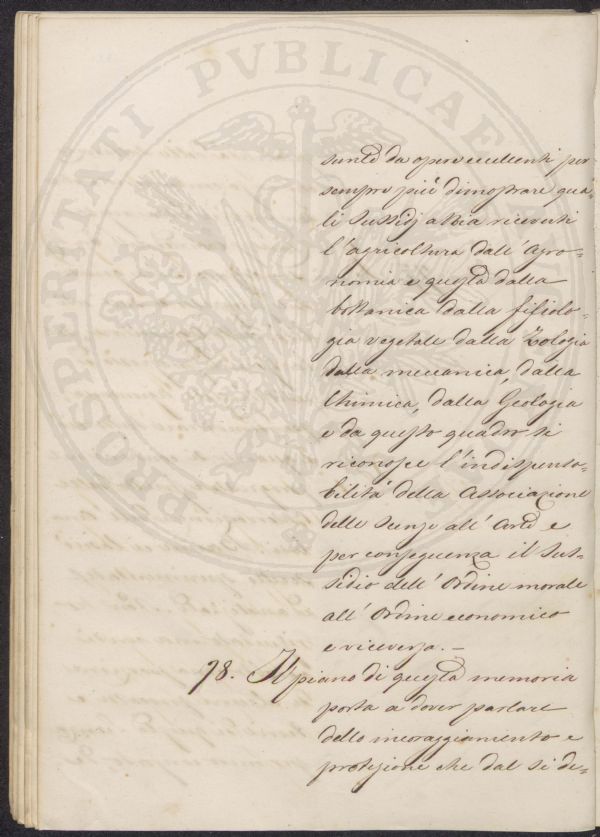 PROSPERITATI PVBLICAE
sunte da opere eccellenti per
sempre più dimostrare qua-
li sussidj abbia ricevuti
l'agricoltura dall'Agro-
nomia e questa dalla
bottanica dalla fisiolo-
gia vegetale dalla Zologia
dalla meccanica, dalla
Chimica, dalla Geologia
e da questo quadro si
riconosce l'indispensa-
bilità della Associazione
delle Scienze all'Arte e
per conseguenza il sus-
sidio dell'Ordine morale
all'Ordine economico
e viceversa. —
78. Il piano di questa memoria
porta a dover parlare
dello incoraggiamento e
protezione che dal si de-